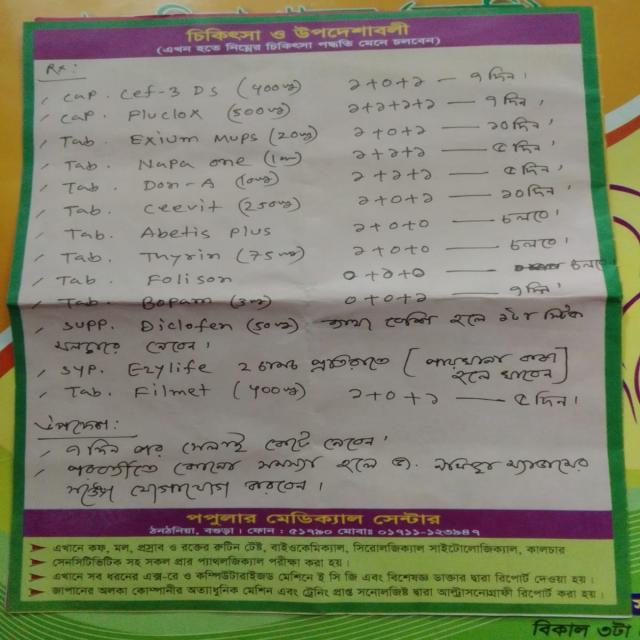 চিকিৎসা ও উপদেশাবলী
(এখন হতে নিম্নের চিকিৎসা পদ্ধতি মেনে চলবেন)
Rx:
Cap. Cef-3 DS (400mg) ১+০+১ — ৭ দিন।
Cap. Fluclox (500mg) ১+১+১+১ — ৭ দিন।
Tab. Exium Mups (20mg) ১+০+১ — ১০ দিন।
Tab. Napa one (1gm) ১+১+১ — ৫ দিন।
Tab. Don-A (10mg) ১+১+১ — ৫ দিন।
Tab. Ceevit (250mg) ১+০+১ — ১০ দিন।
Tab. Abetis Plus ১+০+০ — চলবে।
Tab. Thyrin (75mg) ১+০+০ — চলবে।
Tab. Folison ০+১+০ — চলবে।
Tab. Bopam (3mg) ০+০+১ — ৭ দিন।
Supp. Diclofen (50mg) ব্যথা বেশি হলে ১টা স্টিক
মলদ্বারে নেবেন।
Syp. Ezylife ২ চামচ প্রতিরাতে [পায়খানা কষা
হলে খাবেন]
Tab. Filmet (400mg) ১+০+১ — ৫ দিন।
উপদেশ:
৭ দিন পর সেলাই কেটে নেবেন।
পরবর্তীতে কোনো সমস্যা হলে ডা. ম্যাডামের
সঙ্গে যোগাযোগ করবেন।
পপুলার মেডিক্যাল সেন্টার
ঠনঠনিয়া, বগুড়া। ফোন : ৫১৭৯০ মোবাঃ ০১৭১১-১২৩৯৪৭
এখানে কফ, মল, প্রস্রাব ও রক্তের রুটিন টেষ্ট, বাইওকেমিক্যাল, সিরোলজিক্যাল সাইটোলোজিক্যাল, কালচার
সেনসিটিভিটিক সহ সকল প্রার প্যাথলজিক্যাল পরীক্ষা করা হয়।
এখানে সব ধরনের এক্স-রে ও কম্পিউটারাইজড মেশিনে ই সি জি এবং বিশেষজ্ঞ ডাক্তার দ্বারা রিপোর্ট দেওয়া হয়।
জাপানের অলকা কোম্পানীর অত্যাধুনিক মেশিন এবং ট্রেনিং প্রাপ্ত সনোলজিষ্ট দ্বারা আল্ট্রাসনোগ্রাফী রিপোর্ট করা হয়।
বিকাল ৩টা